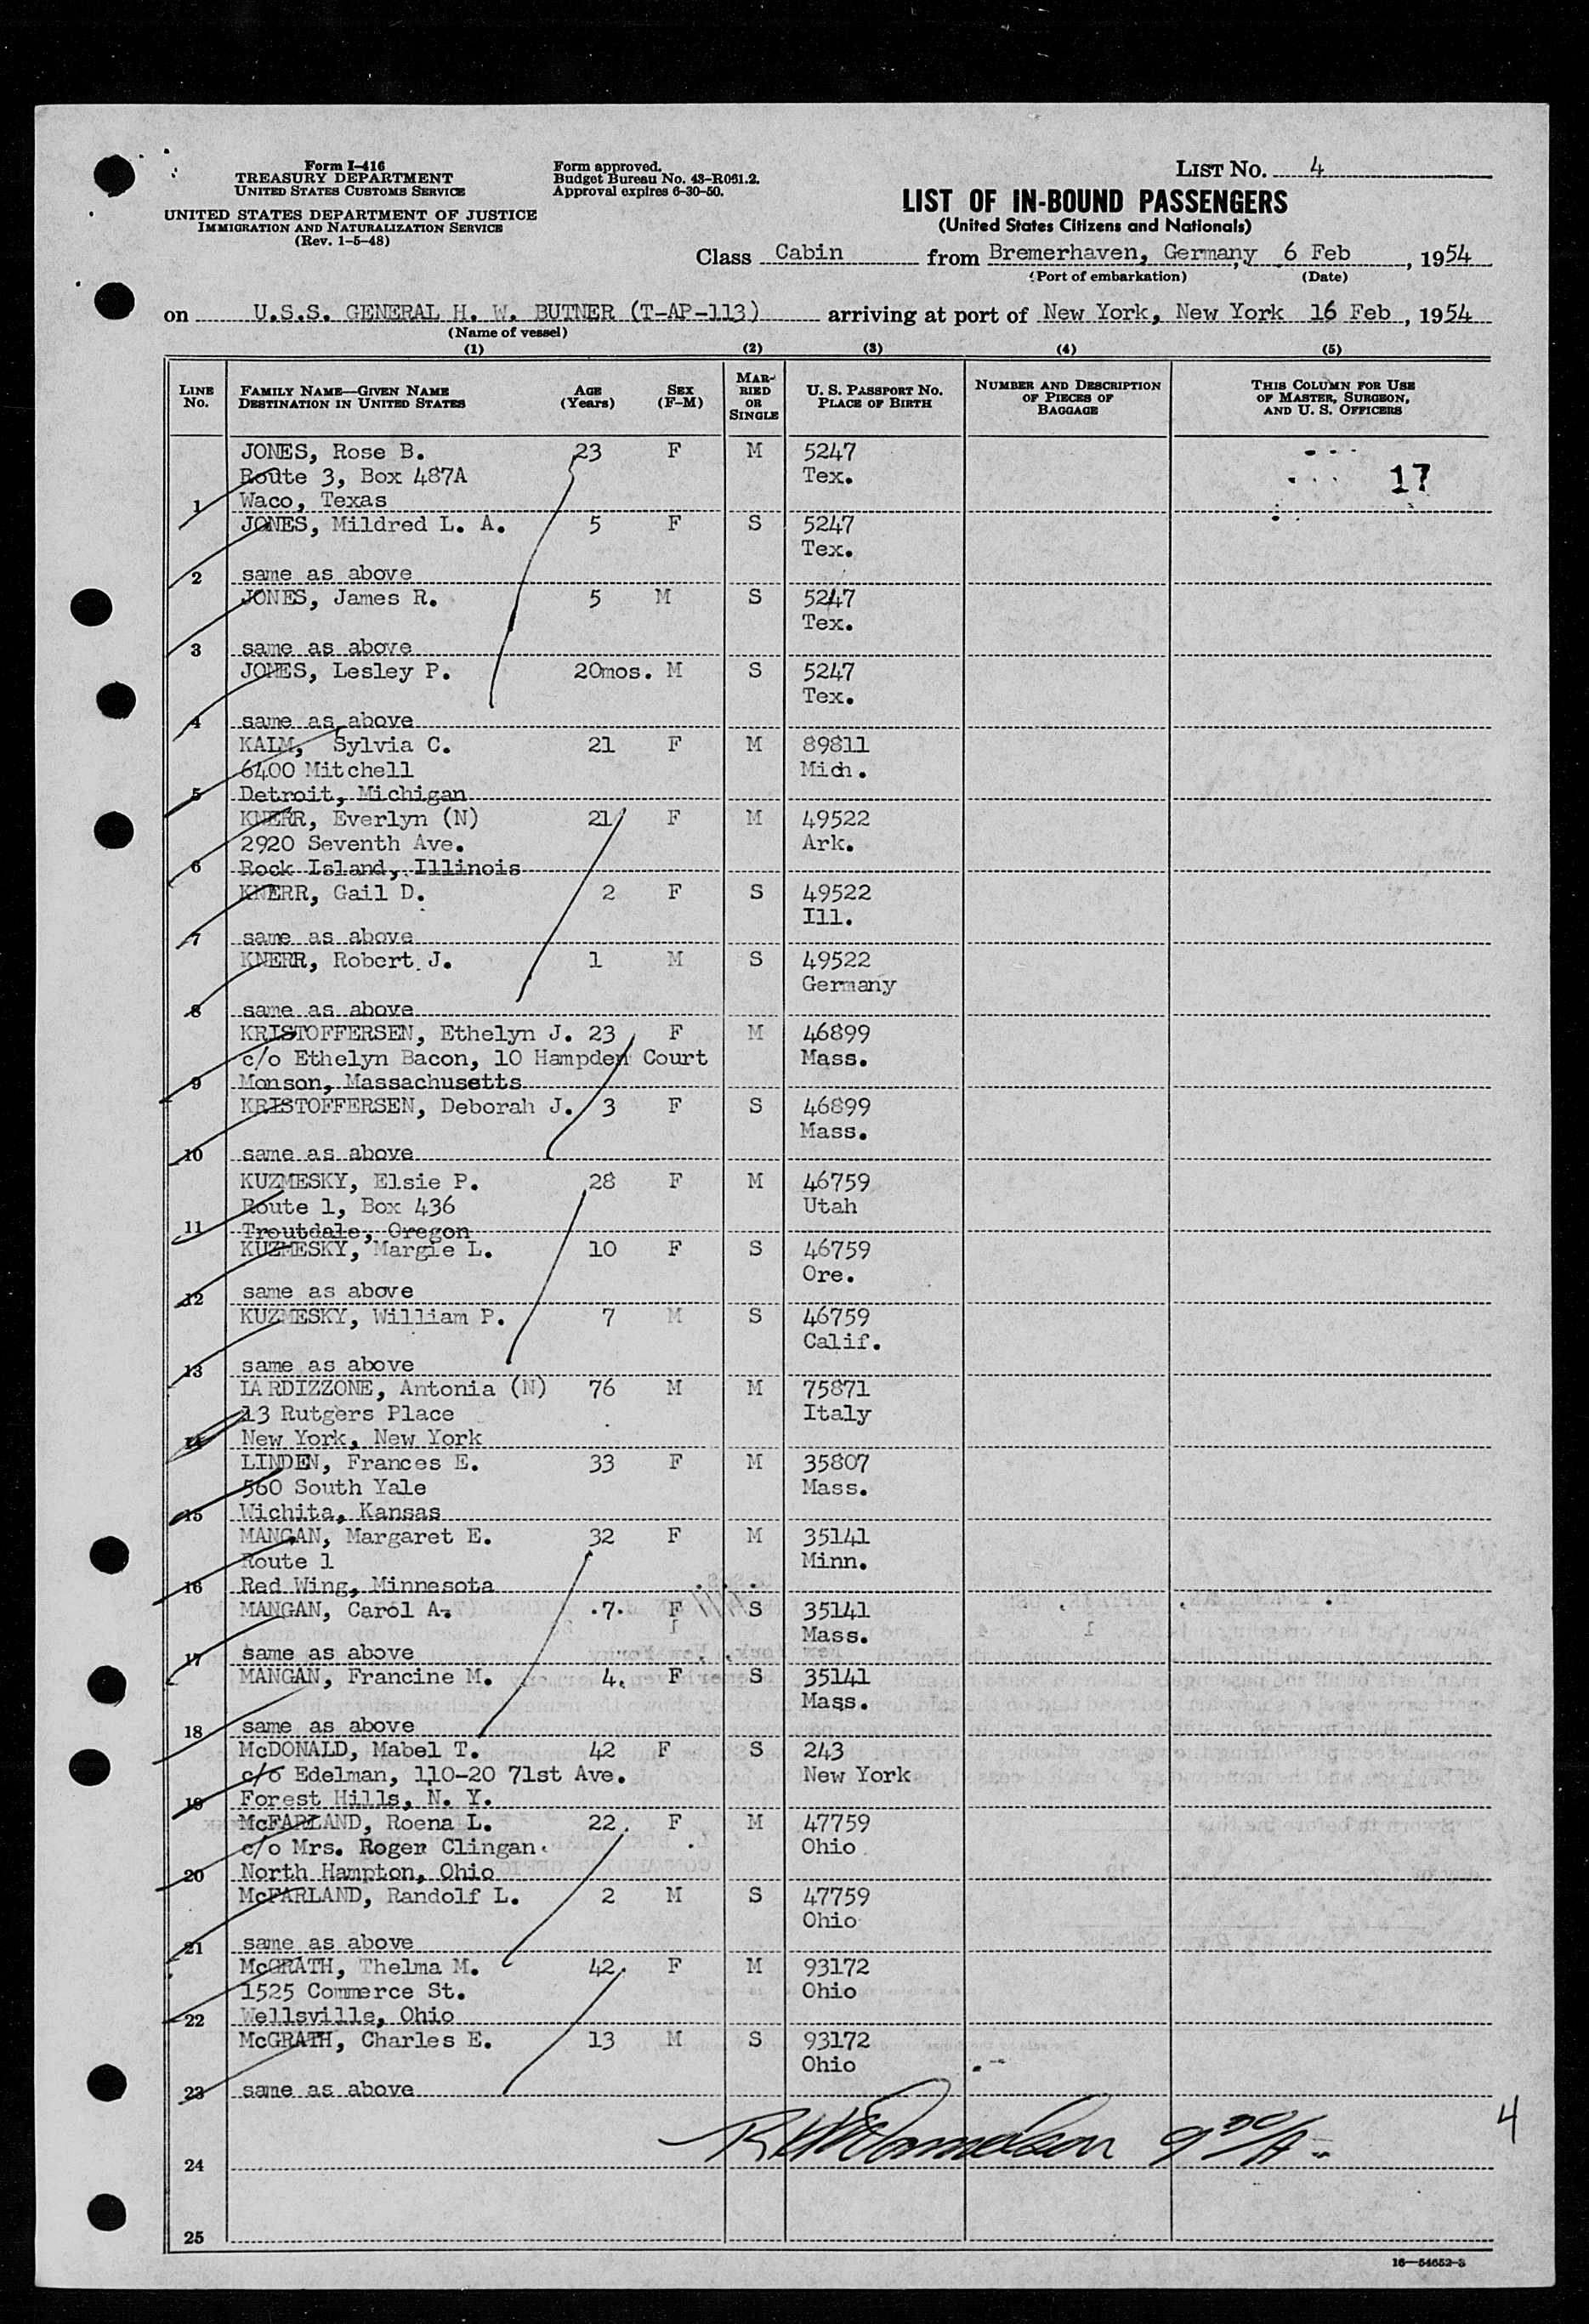 Form I-416
TREASURY DEPARTMENT
UNITED STATES CUSTOMS SERVICE
UNITED STATES DEPARTMENT OF JUSTICE
IMMIGRATION AND NATURALIZATION SERVICE
(Rev. 1-5-48)
Form approved.
Budget Bureau No. 43-R061.2.
Approval expires 6-30-50.
LIST NO. 4
LIST OF IN-BOUND PASSENGERS
(United States Citizens and Nationals)
Class Cabin from Bremerhaven, Germany, 6 Feb, 1954
(Port of embarkation) (Date)
on U.S.S. GENERAL H. W. BUTNER (T-AP-113) arriving at port of New York, New York 16 Feb, 1954
(Name of vessel)
(1) (2) (3) (4) (5)
LINE NO. FAMILY NAME—GIVEN NAME DESTINATION IN UNITED STATES AGE (Years) SEX (F-M) MARRIED OR SINGLE U. S. PASSPORT NO. PLACE OF BIRTH NUMBER AND DESCRIPTION OF PIECES OF BAGGAGE THIS COLUMN FOR USE OF MASTER, SURGEON, AND U. S. OFFICERS
JONES, Rose B. 23 F M 5247
Route 3, Box 487A Tex. 17
1 Waco, Texas
JONES, Mildred L. A. 5 F S 5247
Tex.
2 same as above
JONES, James R. 5 M S 5247
Tex.
3 same as above
JONES, Lesley P. 20mos. M S 5247
Tex.
4 same as above
KALM, Sylvia C. 21 F M 89811
6400 Mitchell Mich.
5 Detroit, Michigan
KNERR, Everlyn (N) 21 F M 49522
2920 Seventh Ave. Ark.
6 Rock Island, Illinois
KNERR, Gail D. 2 F S 49522
Ill.
7 same as above
KNERR, Robert J. 1 M S 49522
Germany
8 same as above
KRISTOFFERSEN, Ethelyn J. 23 F M 46899
c/o Ethelyn Bacon, 10 Hampden Court Mass.
9 Monson, Massachusetts
KRISTOFFERSEN, Deborah J. 3 F S 46899
Mass.
10 same as above
KUZMESKY, Elsie P. 28 F M 46759
Route 1, Box 436 Utah
11 Troutdale, Oregon
KUZMESKY, Margie L. 10 F S 46759
Ore.
12 same as above
KUZMESKY, William P. 7 M S 46759
Calif.
13 same as above
IARDIZZONE, Antonia (N) 76 M M 75871
13 Rutgers Place Italy
14 New York, New York
LINDEN, Frances E. 33 F M 35807
560 South Yale Mass.
15 Wichita, Kansas
MANGAN, Margaret E. 32 F M 35141
Route 1 Minn.
16 Red Wing, Minnesota
MANGAN, Carol A. 7 F S 35141
Mass.
17 same as above
MANGAN, Francine M. 4 F S 35141
Mass.
18 same as above
McDONALD, Mabel T. 42 F S 243
c/o Edelman, 110-20 71st Ave. New York
19 Forest Hills, N. Y.
McFARLAND, Roena L. 22 F M 47759
c/o Mrs. Roger Clingan Ohio
20 North Hampton, Ohio
McFARLAND, Randolf L. 2 M S 47759
Ohio
21 same as above
McGRATH, Thelma M. 42 F M 93172
1525 Commerce St. Ohio
22 Wellsville, Ohio
McGRATH, Charles E. 13 M S 93172
Ohio
23 same as above
4
24
25
16—54652-3